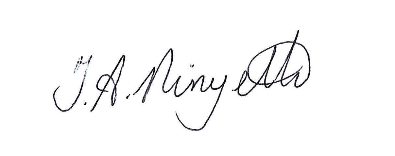 J. A. Ninyette